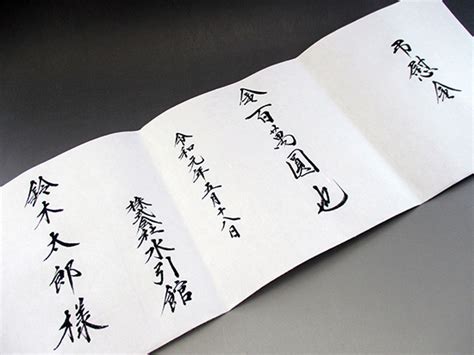 弔慰金
金百萬圓也
令和元年五月十八日
株式会社水引館
鈴木太郎様